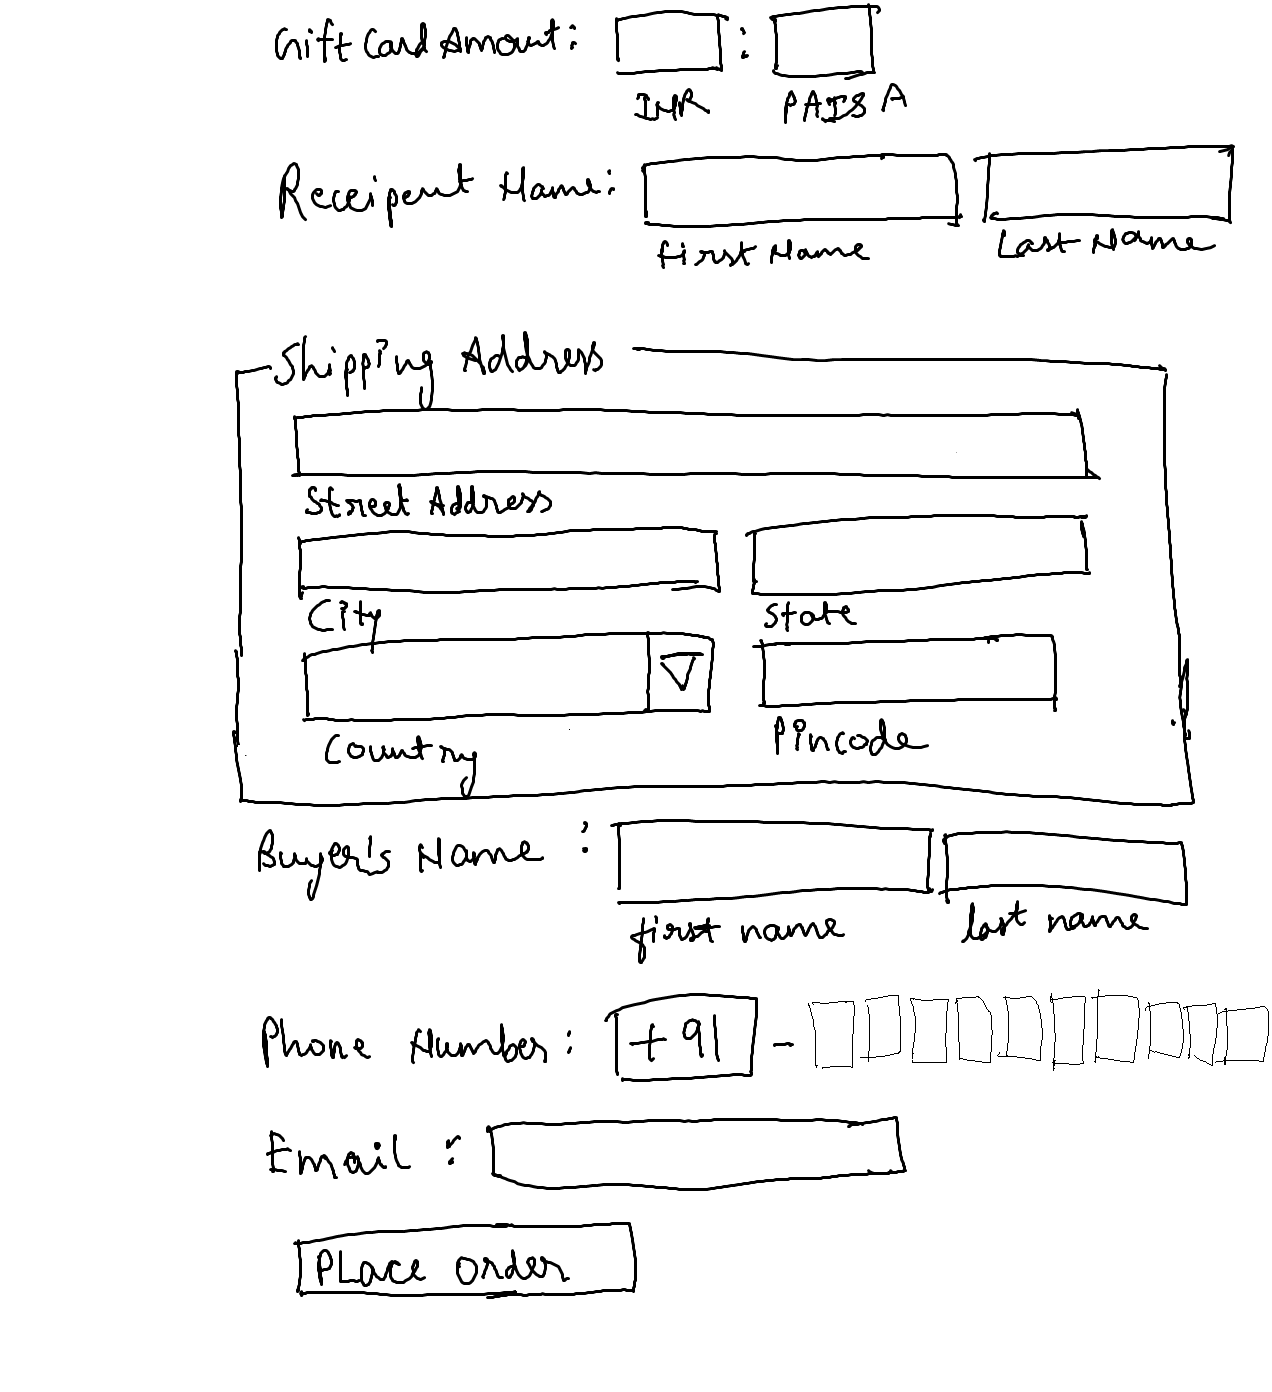 Gift Card Amount: :
INR PAISA
Receipent Name:
First Name Last Name
Shipping Address
Street Address
City State
Country Pincode
Buyer's Name :
first name last name
Phone Number: +91 -
Email :
PLace Order